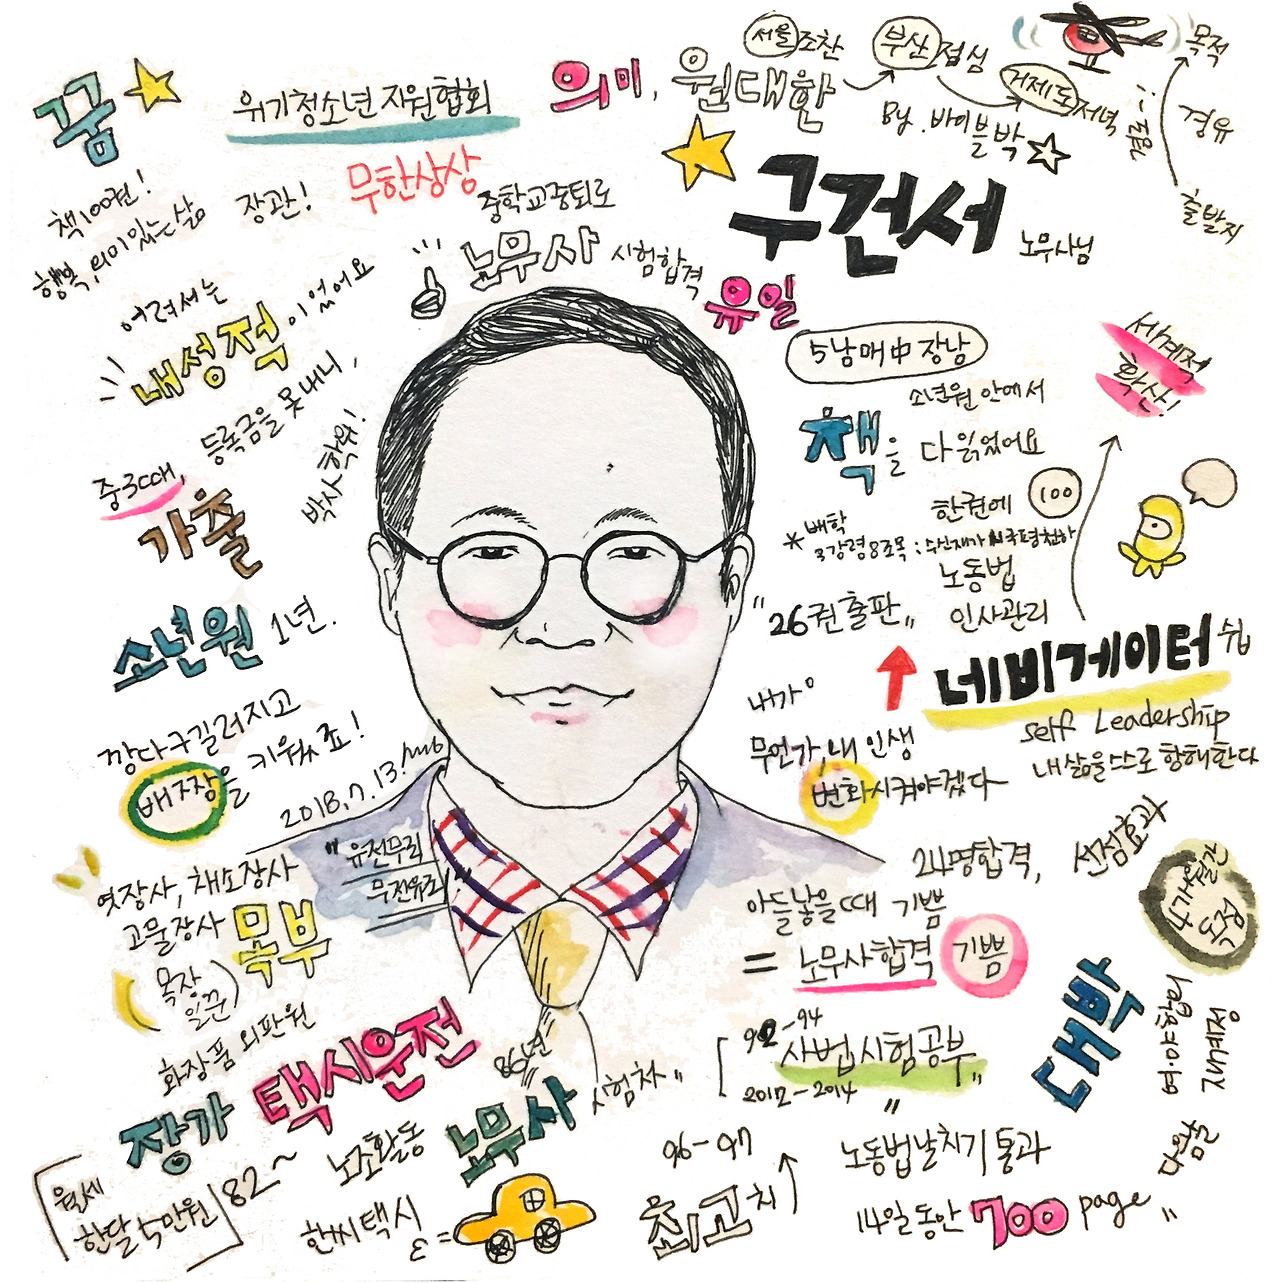 꿈
위기청소년 지원협회
의미, 원대한
서울 조찬
부산 점심
거제도 저녁
By. 바이블 박
목적
경유
출발지
책 100권!
행복, 의미있는 삶
장관!
무한상상
중학교중퇴로
노무사 시험합격
유일
구건서 노무사님
어려서는
내성적이었어요
5남매中 장남
소년원 안에서
책을 다 읽었어요
세계적
확산!
중3때, 등록금을 못내니,
가출
박사학위!
한권에 100
*대학
3강령8조목 : 수신제가치국평천하
노동법
인사관리
"26권 출판"
소년원 1년.
네비게이터쉽
self Leadership
내 삶을 스스로 항해한다
내가
무언가, 내 인생
변화시켜야겠다
깡다구 길러지고
배짱을 키웠죠!
2018.7.13.
"유전무죄
무전유죄"
엿장사, 채소장사
고물장사 목부
(목장
일꾼)
화장품 외판원
24명합격, 선점효과
아들 낳을때 기쁨
= 노무사합격 기쁨
92-94
사법시험공부"
2012-2014
대박
여·야합의
재개정
택시운전
86년
장가
노조활동 노무사 시험차"
월세
한달 5만원
82~
한씨택시
96-97
최고치
"
노동법날치기 통과
14일동안 700 page"